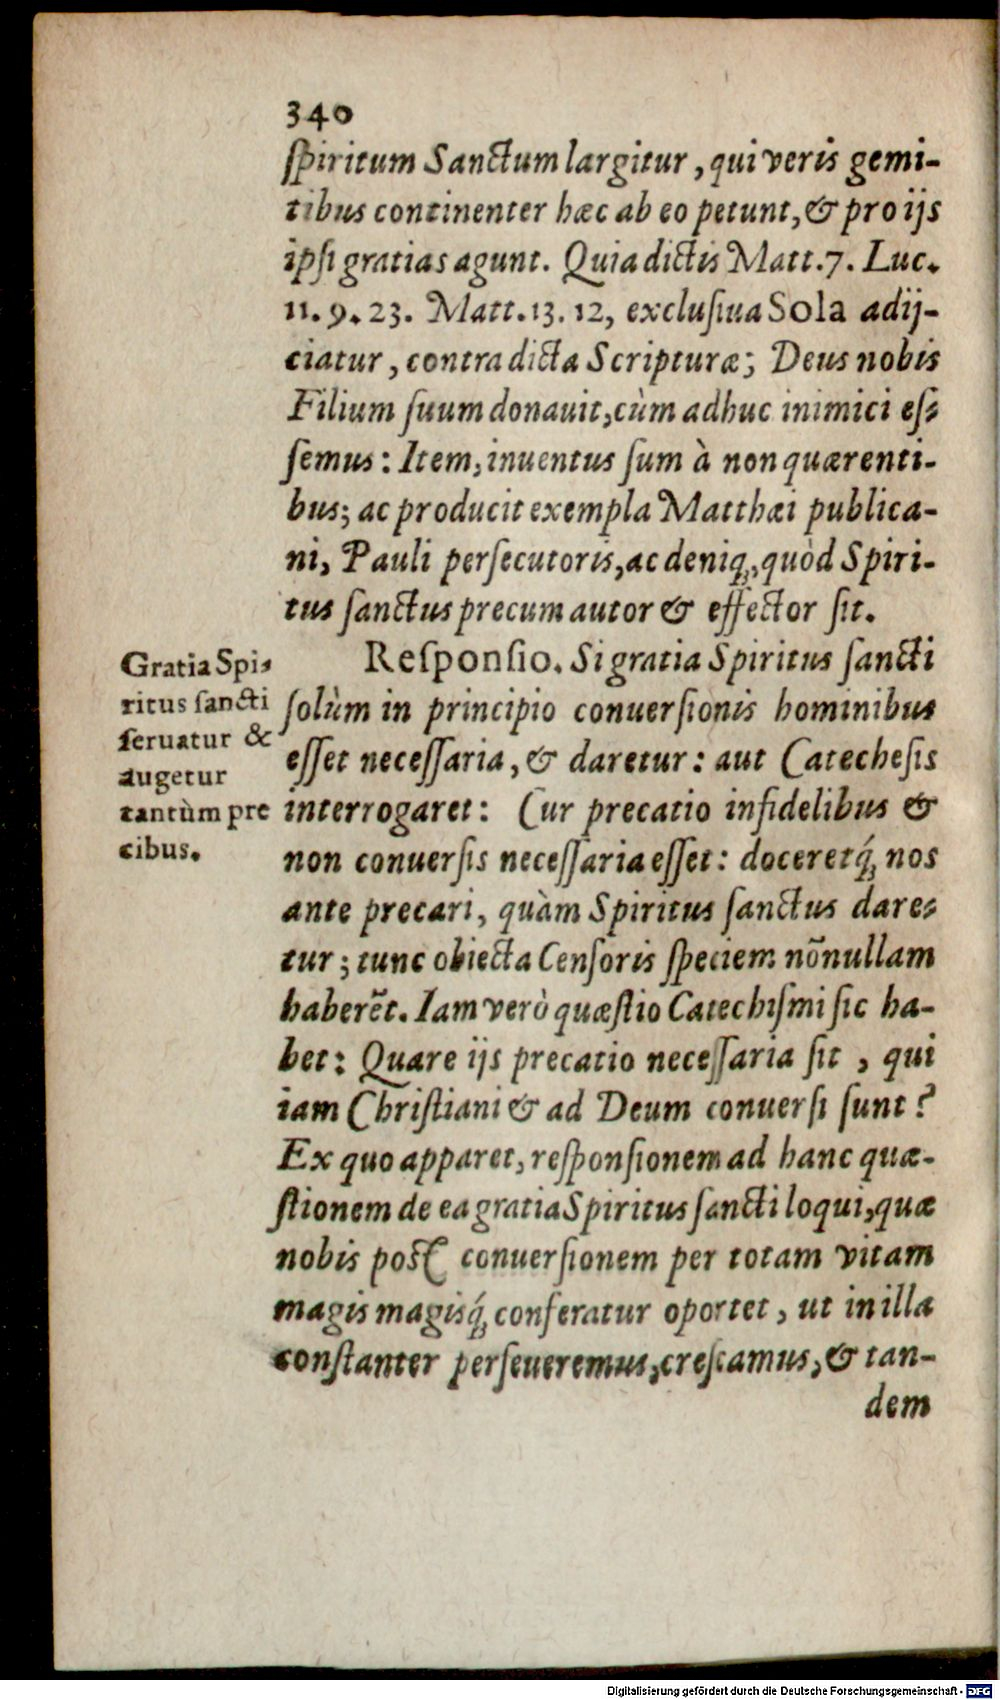 340
ſpiritum Sanctum largitur, qui veris gemi-
tibus continenter hæc ab eo petunt, & pro ijs
ipſi gratias agunt. Quia dictis Matt. 7. Luc.
11. 9. 23. Matt. 13. 12, excluſiua Sola adij-
ciatur, contra dicta Scripturæ; Deus nobis
Filium ſuum donauit, cùm adhuc inimici eſ-
ſemus: Item, inuentus ſum à non quærenti-
bus; ac producit exempla Matthæi publica-
ni, Pauli perſecutoris, ac deniq́;, quòd Spiri-
tus ſanctus precum autor & effector ſit.
Reſponſio. Si gratia Spiritus ſancti
ſolùm in principio conuerſionis hominibus
eſſet neceſſaria, & daretur: aut Catecheſis
interrogaret: Cur precatio infidelibus &
non conuerſis neceſſaria eſſet: doceretq́; nos
ante precari, quàm Spiritus ſanctus dare-
tur; tunc obiecta Cenſoris ſpeciem nōnullam
haberēt. Iam verò quæſtio Catechiſmi ſic ha-
bet: Quare ijs precatio neceſſaria ſit, qui
iam Chriſtiani & ad Deum conuerſi ſunt?
Ex quo apparet, reſponſionem ad hanc quæ-
ſtionem de ea gratia Spiritus ſancti loqui, quæ
nobis poſt conuerſionem per totam vitam
magis magisq́; conferatur oportet, ut in illa
conſtanter perſeueremus, creſcamus, & tan-
dem
Gratia Spi-
ritus ſancti
ſeruatur &
augetur
tantùm pre
cibus.
Digitalisierung gefördert durch die Deutsche Forschungsgemeinschaft - DFG